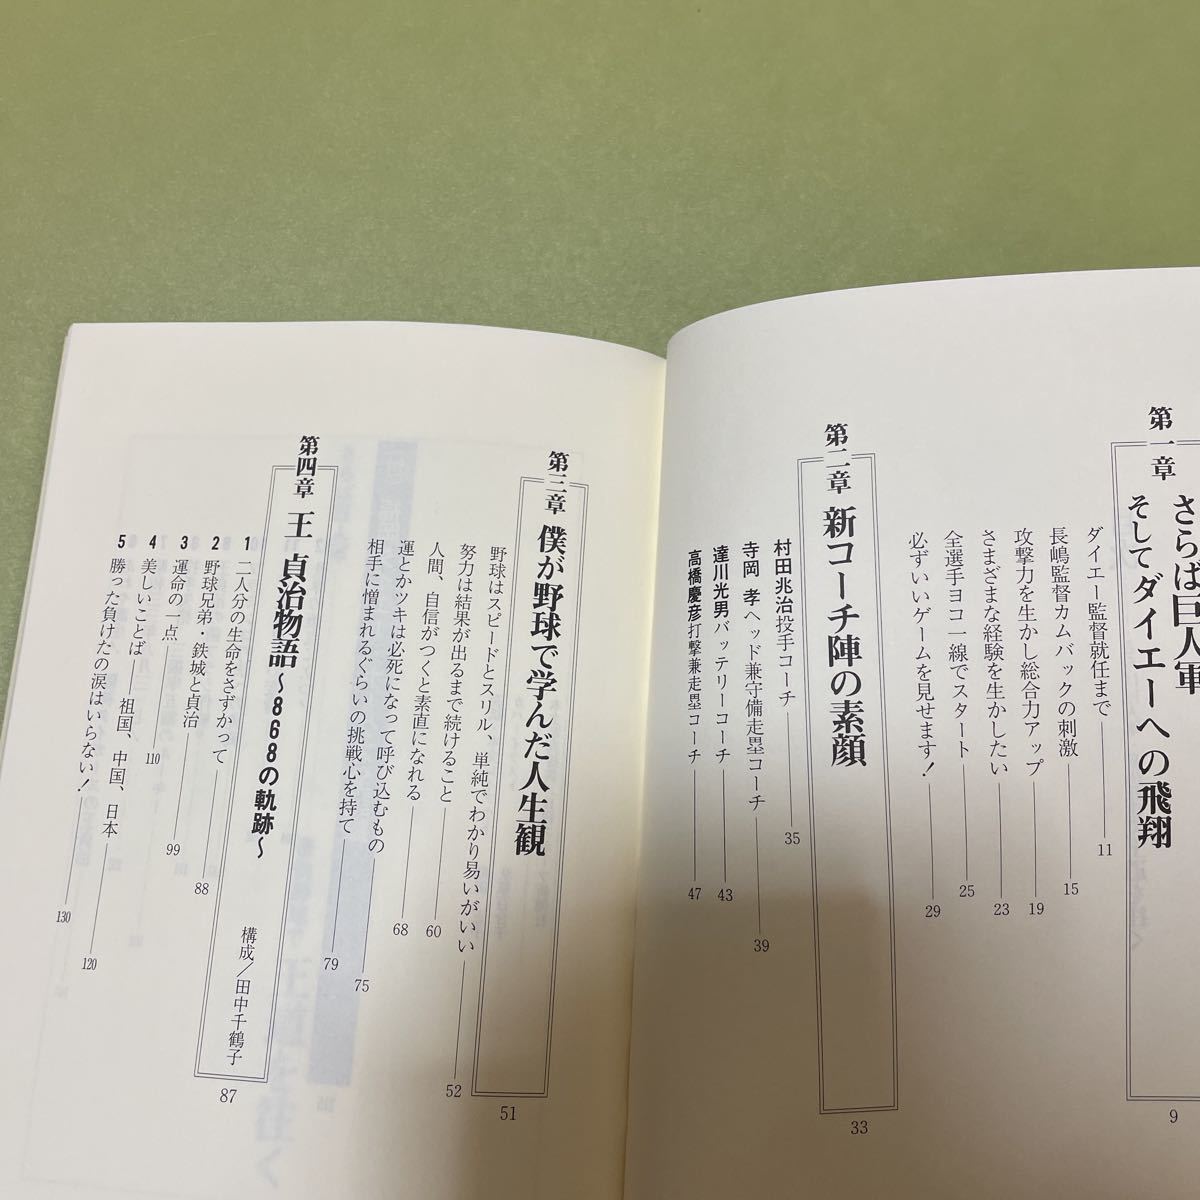 第一章
さらば巨人軍
そしてダイエーへの飛翔
9
ダイエー監督就任まで 11
長嶋監督カムバックの刺激 15
攻撃力を生かし総合力アップ 19
さまざまな経験を生かしたい 23
全選手ヨコ一線でスタート 25
必ずいいゲームを見せます! 29
第二章 新コーチ陣の素顔 33
村田兆治投手コーチ 35
寺岡 孝ヘッド兼守備走塁コーチ 39
達川光男バッテリーコーチ 43
高橋慶彦打撃兼走塁コーチ 47
第三章 僕が野球で学んだ人生観 51
野球はスピードとスリル、単純でわかり易いがいい 52
努力は結果が出るまで続けること 60
人間、自信がつくと素直になれる 68
運とかツキは必死になって呼び込むもの 75
相手に憎まれるぐらいの挑戦心を持て 79
第四章 王 貞治物語〜868の軌跡〜 構成/田中千鶴子 87
1 二人分の生命をさずかって 88
2 野球兄弟・鉄城と貞治 99
3 運命の一点 110
4 美しいことば 祖国、中国、日本 120
5 勝った負けたの涙はいらない! 130